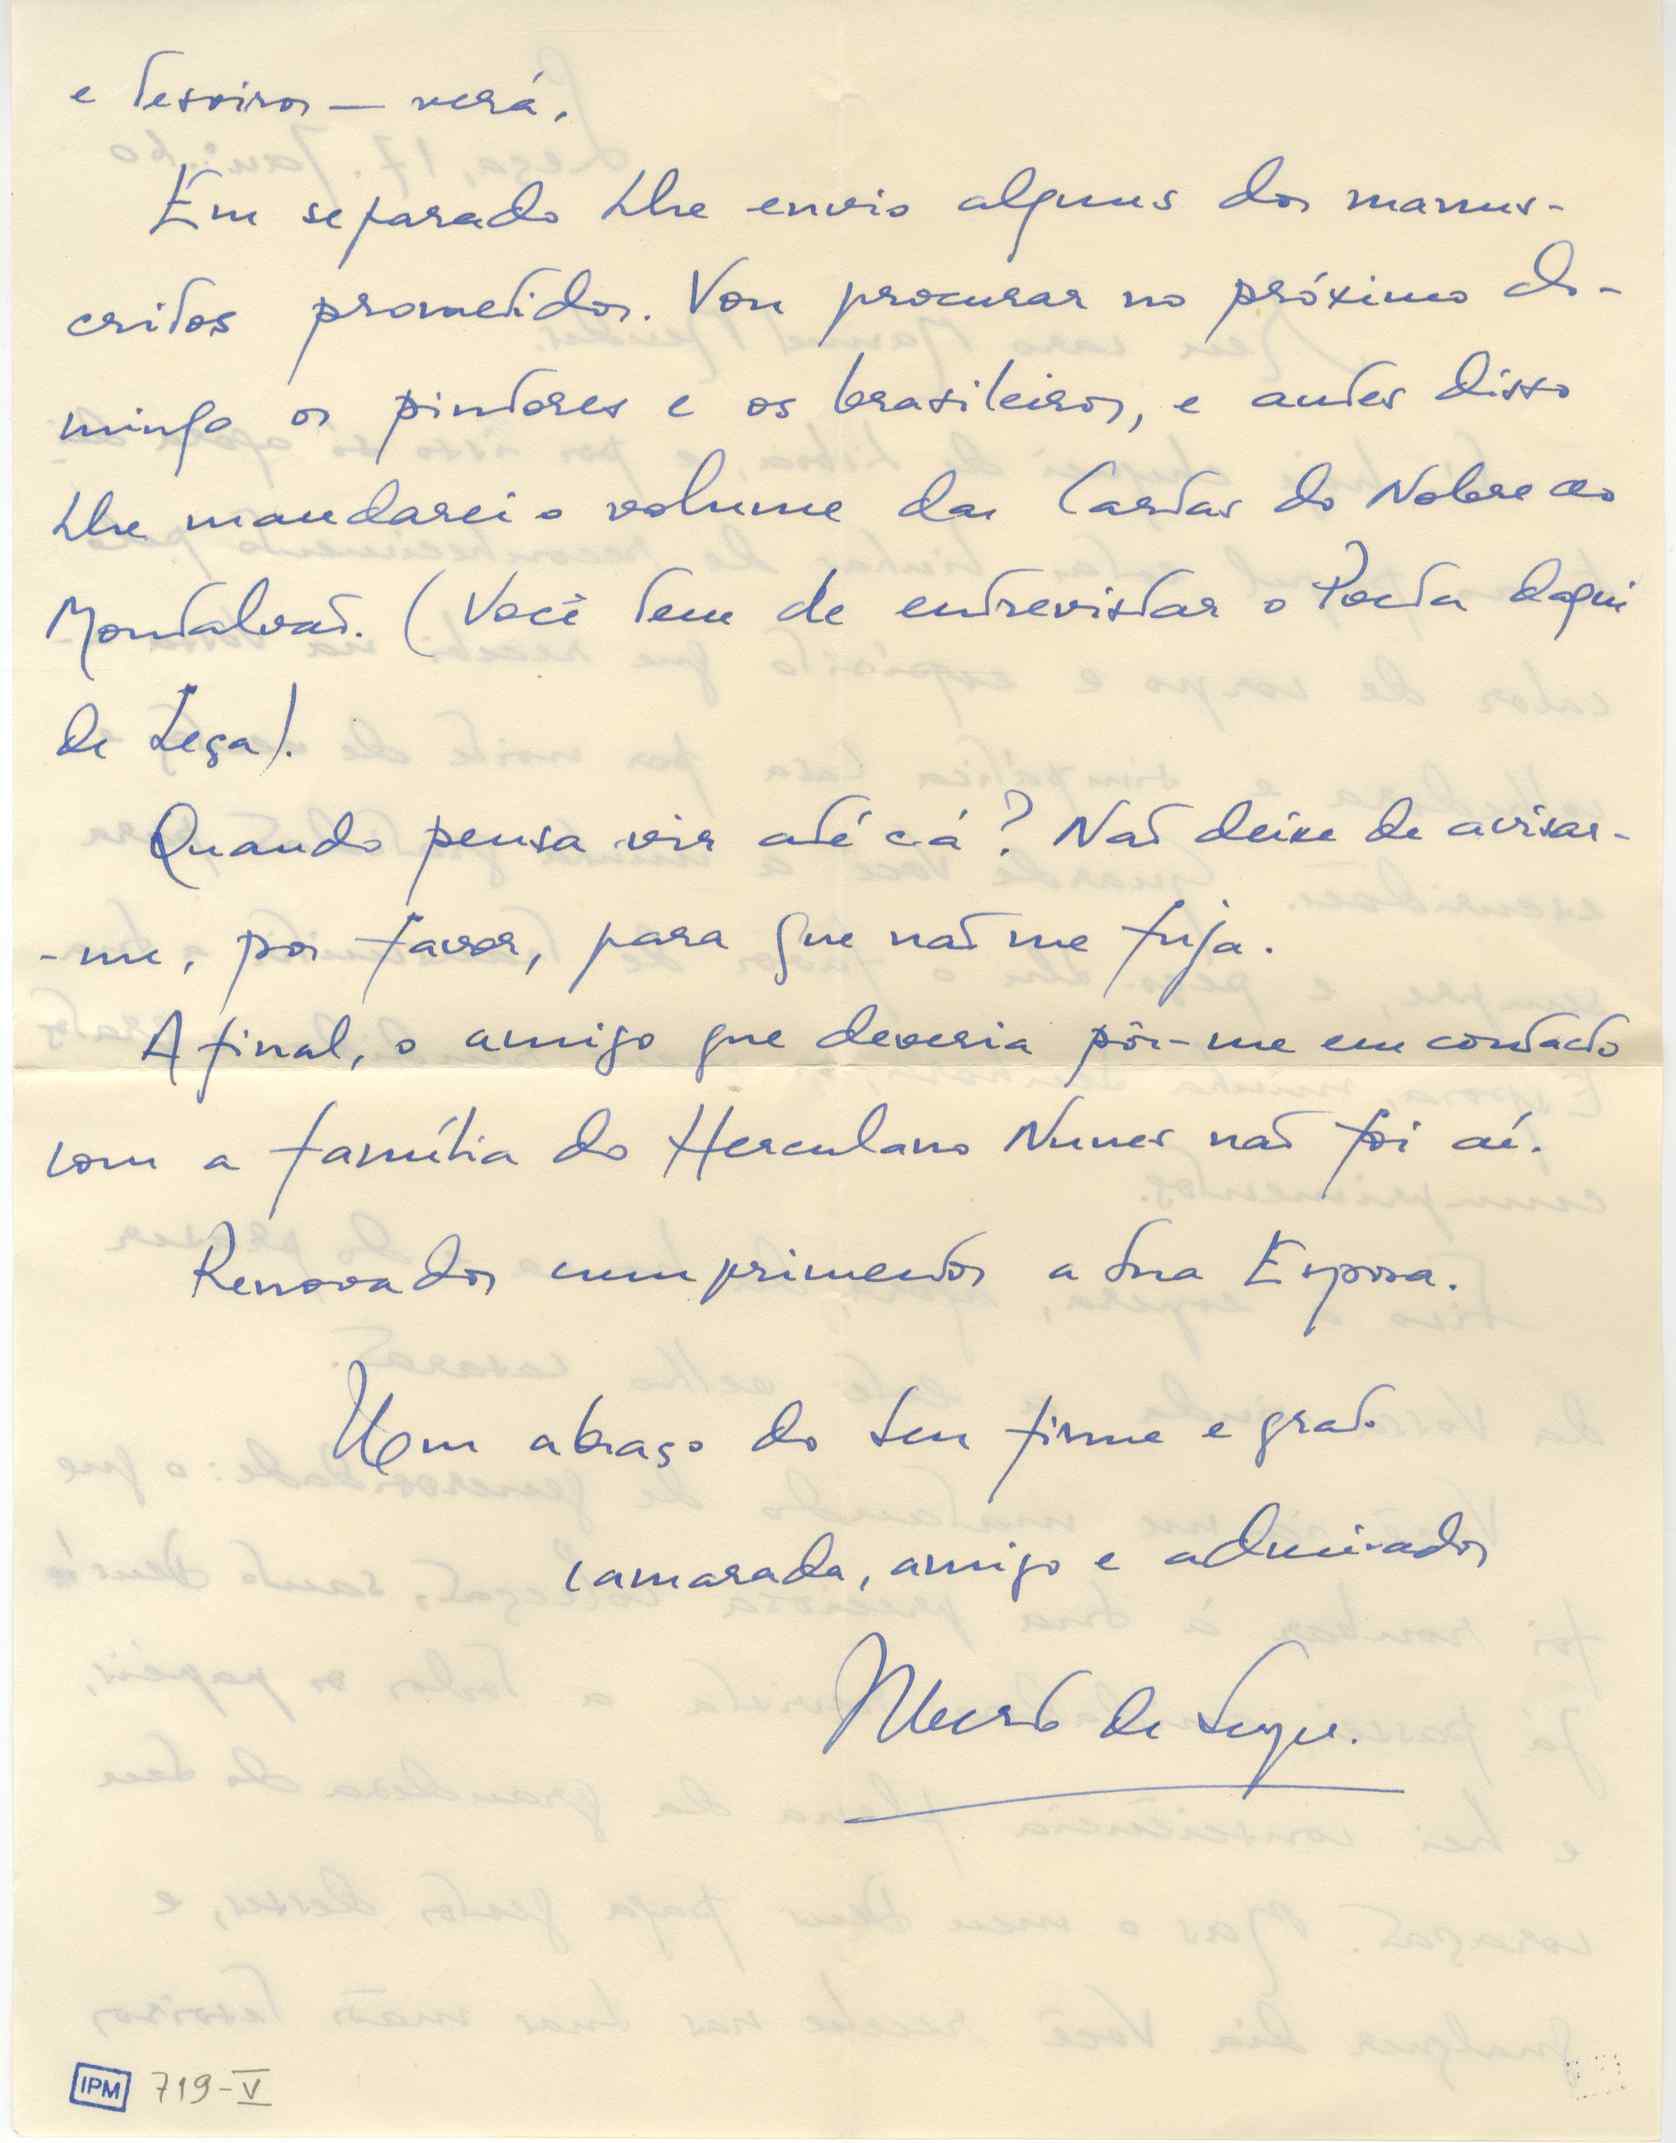 e Tesoiros — verá.
Em separado Lhe envio alguns dos manus-
critos prometidos. Vou procurar no próximo do-
mingo os pintores e os brasileiros, e antes disso
Lhe mandarei o volume das Cartas do Nobre ao
Montalvão. (Você tem de entrevistar o Poeta daqui
de Leça).
Quando pensa vir até cá? Não deixe de avisar-
-me, por favor, para que não me fuja.
Afinal, o amigo que deveria pôr-me em contacto
com a família do Herculano Nunes não foi aí.
Renovados cumprimentos a Sua Esposa.
Um abraço do Seu firme e grato
camarada, amigo e admirador
de
IPM 719-V